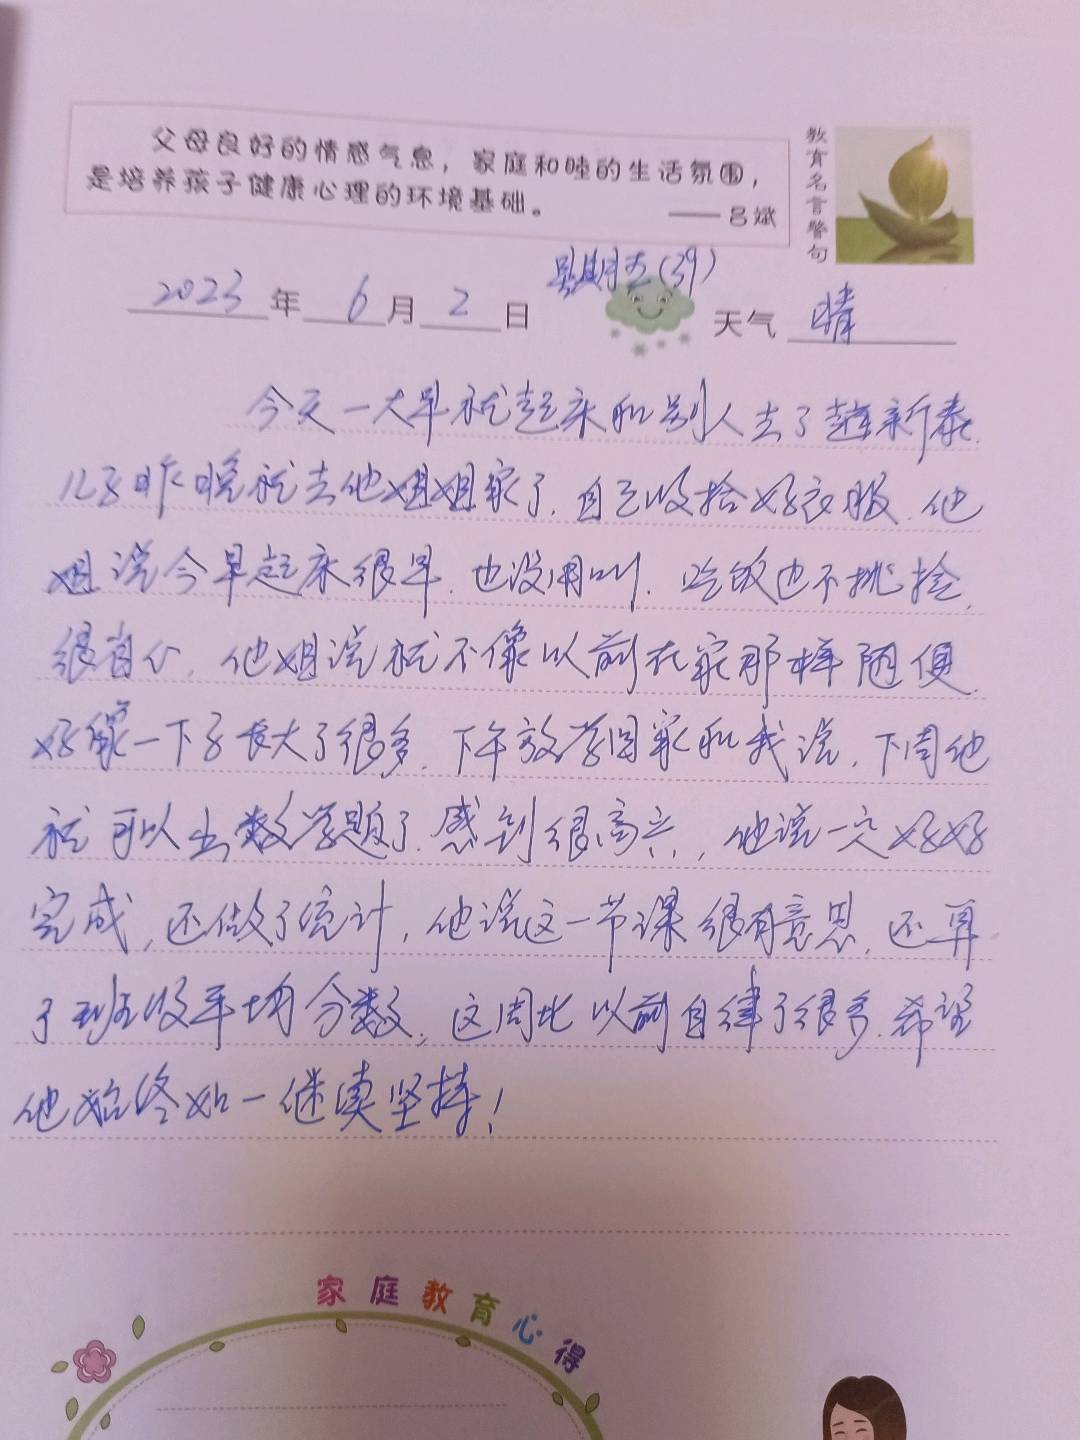 父母良好的情感气息，家庭和睦的生活氛围，
是培养孩子健康心理的环境基础。
—— 吕斌
教育名言警句
星期五(39)
2023年6月2日 天气 晴
今天一大早就起来和别人去了趟新泰.
儿子昨晚就去他姐姐家了.自己收拾好衣服.他
姐说今早起床很早.也没用叫.吃饭也不挑捡.
很省心.他姐说就不像以前在家那样随便.
好像一下子长大了很多.下午放学回家和我说.下周他
就可以出数学题了.感到很高兴,他说一定好好
完成,还做了统计,他说这一节课很有意思.还算
了班级平均分数,这周比以前自律了很多.希望
他始终如一继续坚持!
家庭教育心得